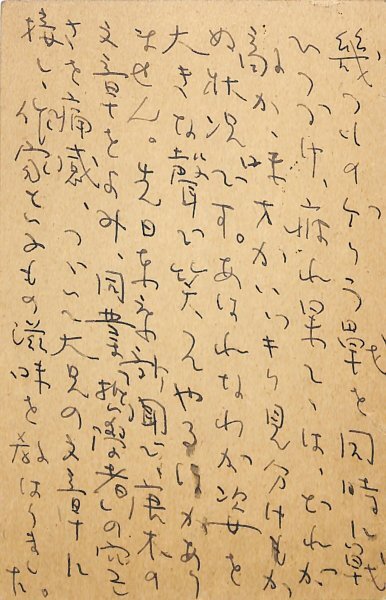 幾つものゲリラ戰を同時に戰
ひつづけ、疲れ果てては、どれが
敵か、味方かいつさい見分けもつか
ぬ状況です。あはれなわが姿を
大きな聲で笑つてやるほかあり
ません。先日東京新聞で、唐木の
文章をよみ、同業 者の空し
さを痛感、ついで大兄の文章に
接し、作家といふもの滋味を教はりました。